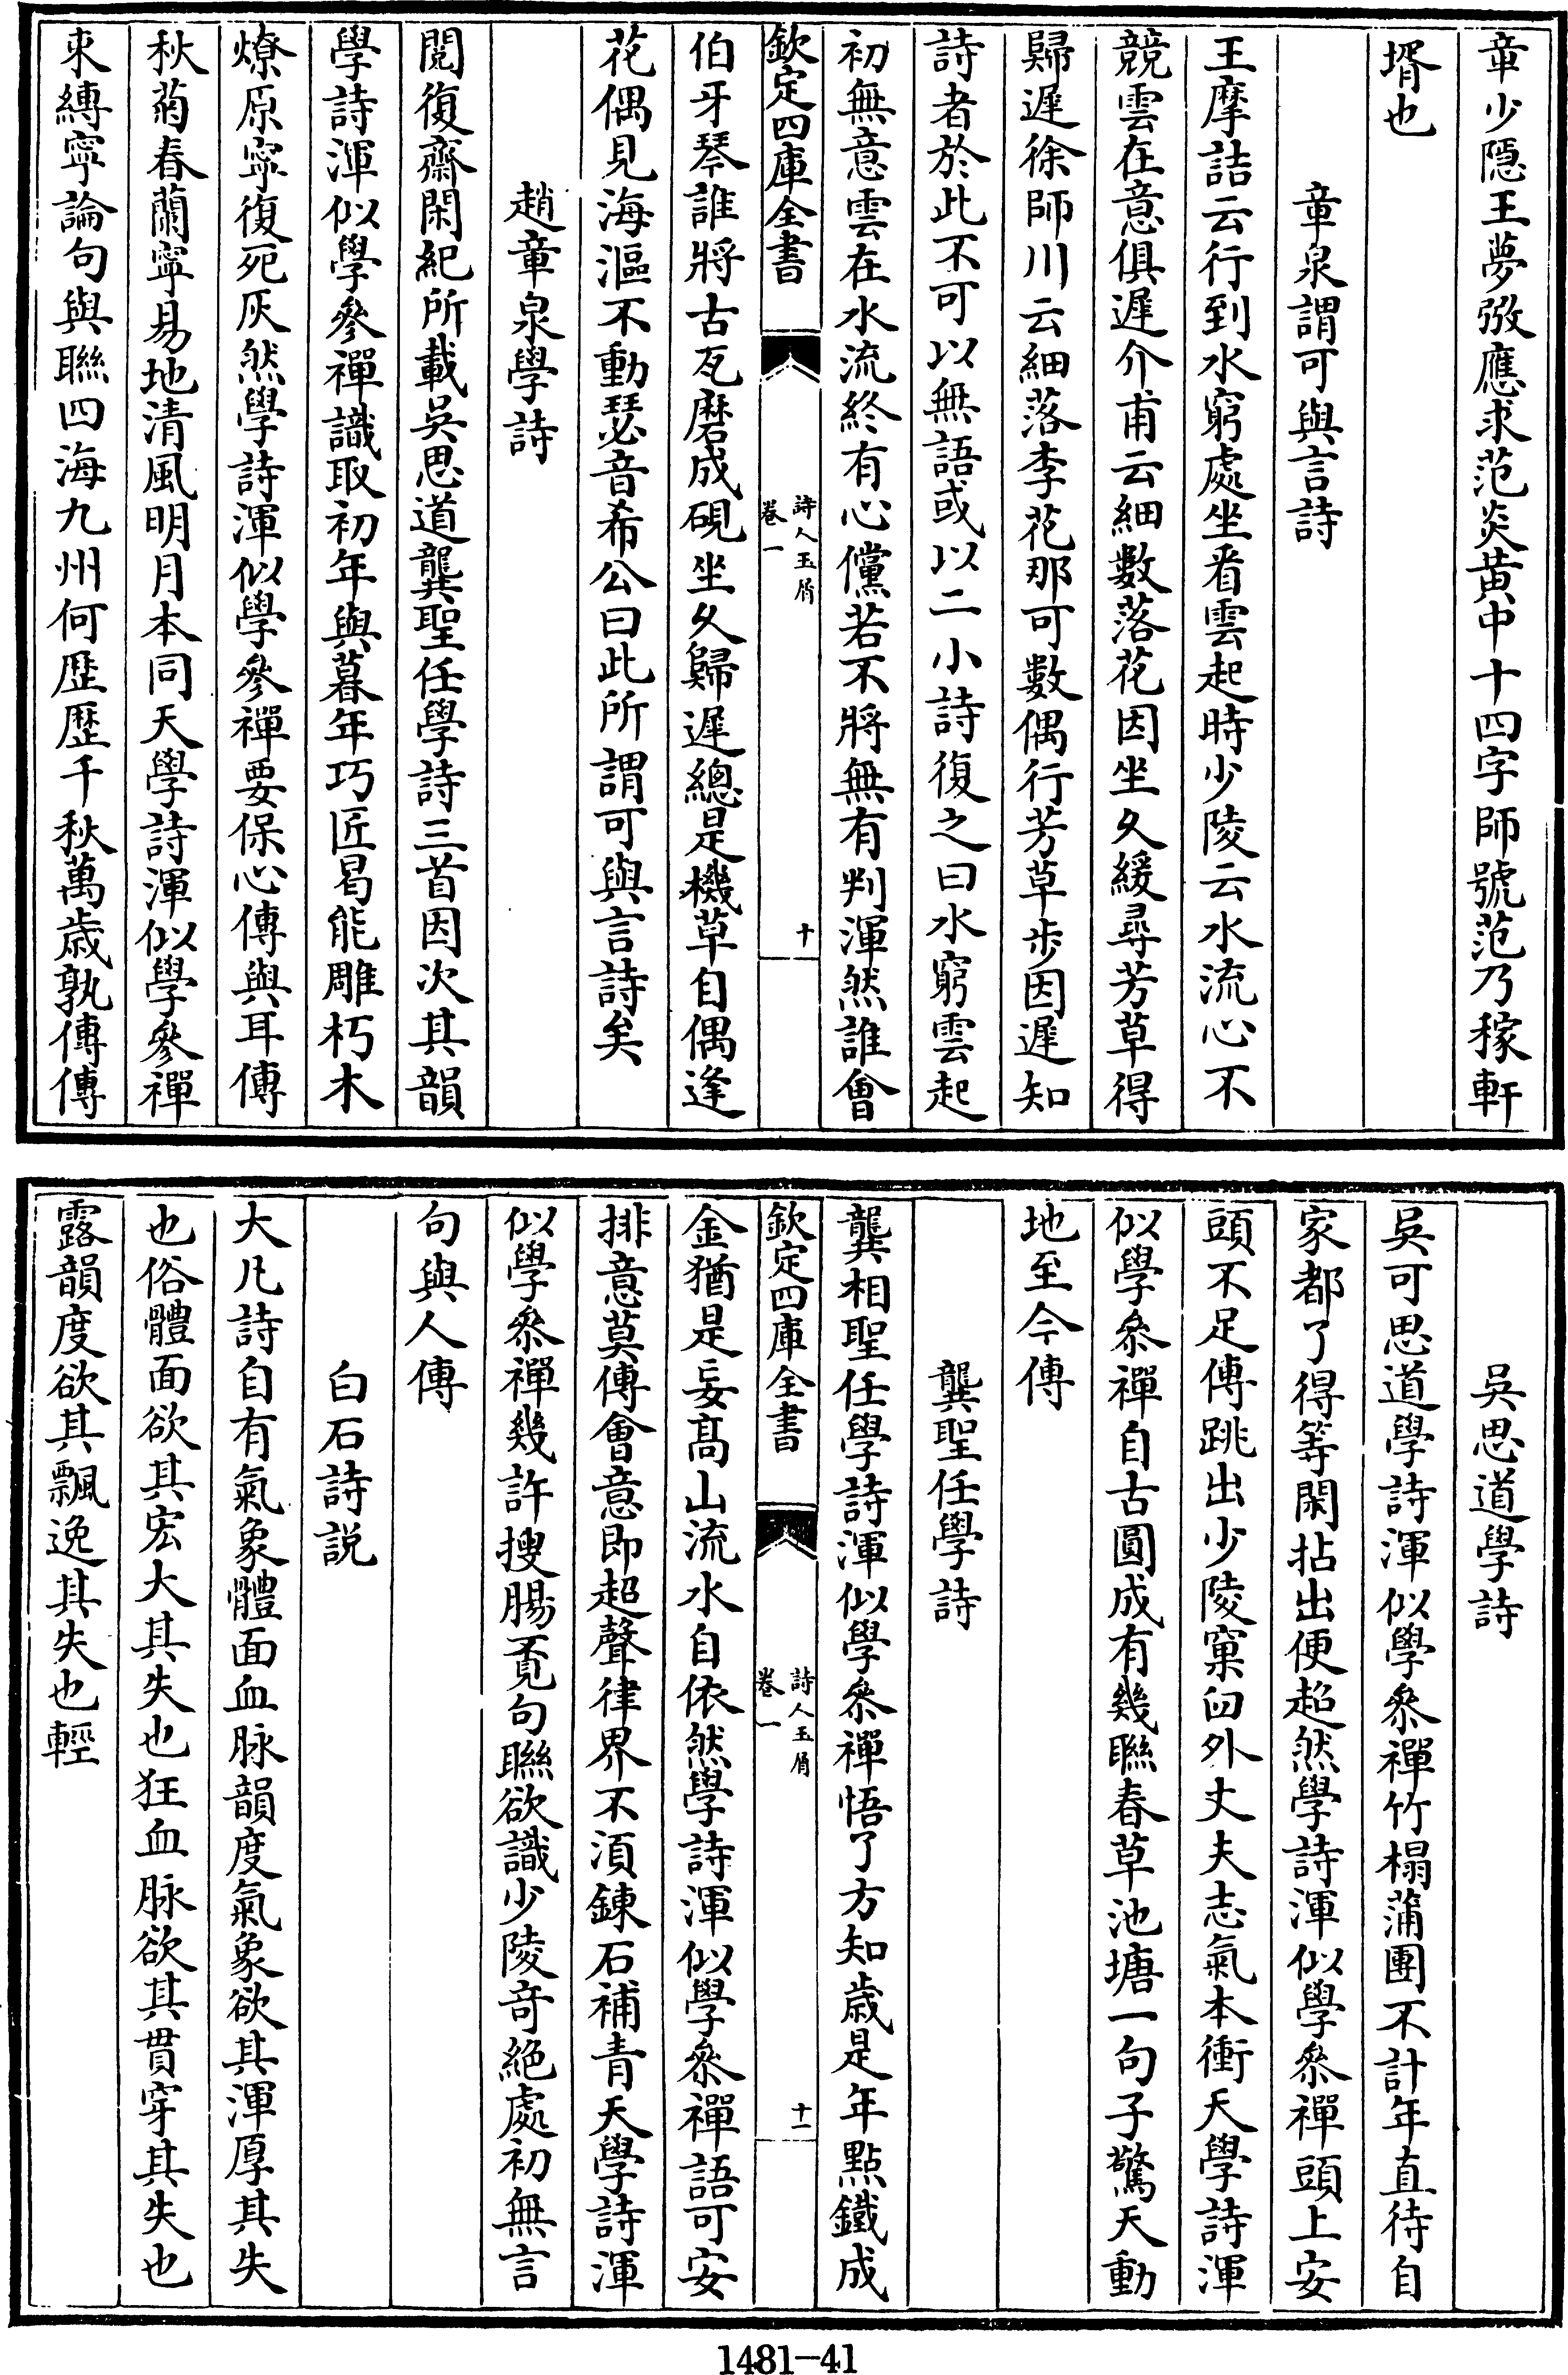 章少隠王夢弢應求范炎黄中十四字師號范乃稼軒
壻也
章泉謂可與言詩
王摩詰云行到水窮處坐看雲起時少陵云水流心不
競雲在意俱遲介甫云細數落花因坐久緩尋芳草得
歸遲徐師川云細落李花那可數偶行芳草步因遲知
詩者於此不可以無語或以二小詩復之曰水窮雲起
初無意雲在水流終有心儻若不將無有判渾然誰會
欽定四庫全書
詩人玉屑
卷一
十
伯牙琴誰將古瓦磨成硯坐久歸遲總是機草自偶逢
花偶見海漚不動瑟音希公曰此所謂可與言詩矣
趙章泉學詩
閲復齋閑紀所載吳思道龔聖任學詩三首因次其韻
學詩渾似學參禪識取初年與暮年巧匠曷能雕朽木
燎原寧復死灰然學詩渾似學參禪要保心傳與耳傳
秋菊春蘭寧易地清風明月本同天學詩渾似學參禪
束縛寧論句與聯四海九州何歴歴千秋萬歳孰傳傳
吳思道學詩
吳可思道學詩渾似學參禪竹榻蒲團不計年直待自
家都了得等閑拈出便超然學詩渾似學參禪頭上安
頭不足傳跳出少陵窠臼外丈夫志氣本衝天學詩渾
似學參禪自古圓成有幾聯春草池塘一句子驚天動
地至今傳
龔聖任學詩
龔相聖任學詩渾似學參禪悟了方知歳是年點鐵成
欽定四庫全書
詩人玉屑
卷一
十一
金猶是妄髙山流水自依然學詩渾似學參禪語可安
排意莫傳會意即超聲律界不須錬石補青天學詩渾
似學參禪幾許搜腸覔句聯欲識少陵奇絶處初無言
句與人傳
白石詩説
大凡詩自有氣象體面血脉韻度氣象欲其渾厚其失
也俗體面欲其宏大其失也狂血脉欲其貫穿其失也
露韻度欲其飄逸其失也輕
1481-41